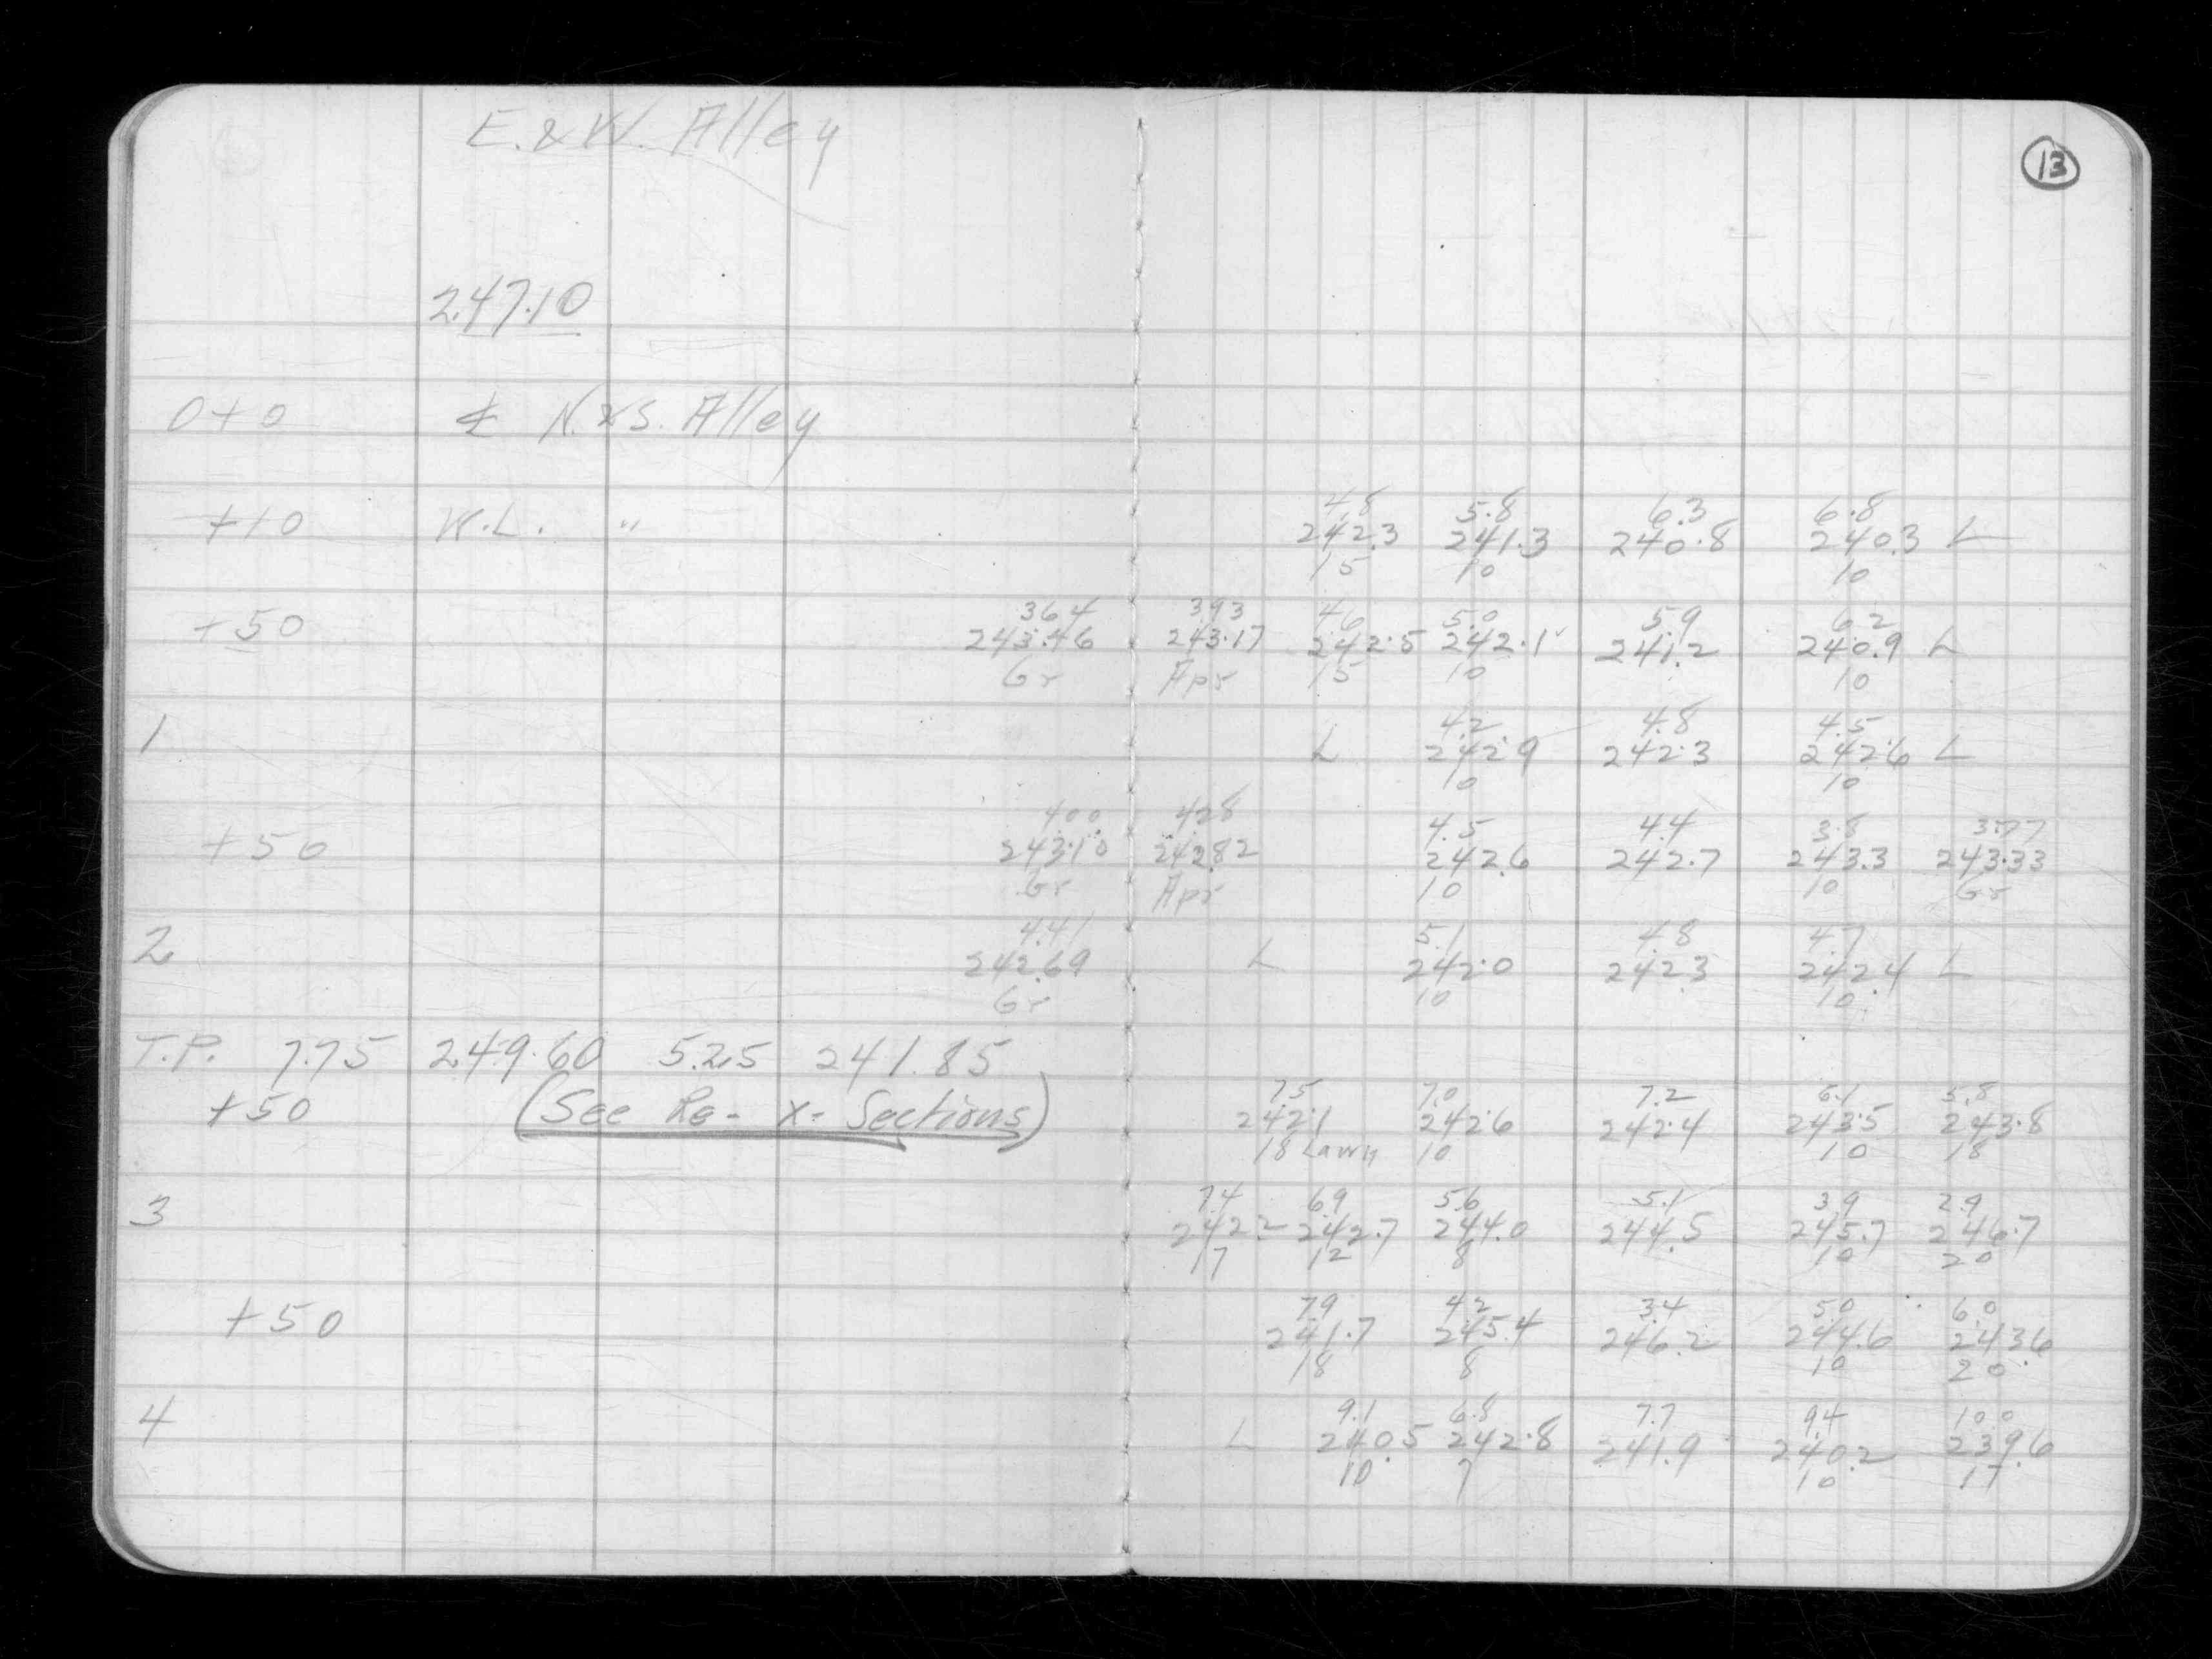 E. & W. Alley
13
247.10
0+0 ℄ N. & S. Alley
4.8 5.8 6.3 6.8
+10 W.L. " 242.3 241.3 240.8 240.3 L
15 10 10
3.64 3.93 4.6 5.0 5.9 6.2
+50 243.46 243.17 242.5 242.1 241.2 240.9 L
Gr Apr 15 10 10
4.2 4.8 4.5
1 L 242.9 242.3 242.6 L
10 10
4.00 4.28 4.5 4.4 3.8 3.77
+50 243.10 242.82 242.6 242.7 243.3 243.33
Gr Apr 10 10 Gr
4.41 5.1 4.8 4.7
2 242.69 L 242.0 242.3 242.4 L
Gr 10 10
T.P. 7.75 249.60 5.25 241.85
7.5 7.0 7.2 6.1 5.8
+50 (See Re- X-Sections) 242.1 242.6 242.4 243.5 243.8
18 Lawn 10 10 18
7.4 6.9 5.6 5.1 3.9 2.9
3 242.2 242.7 244.0 244.5 245.7 246.7
17 12 8 10 20
7.9 4.2 3.4 5.0 6.0
+50 241.7 245.4 246.2 244.6 243.6
18 8 10 20
9.1 6.8 7.7 9.4 10.0
4 L 240.5 242.8 241.9 240.2 239.6
10 7 10 17